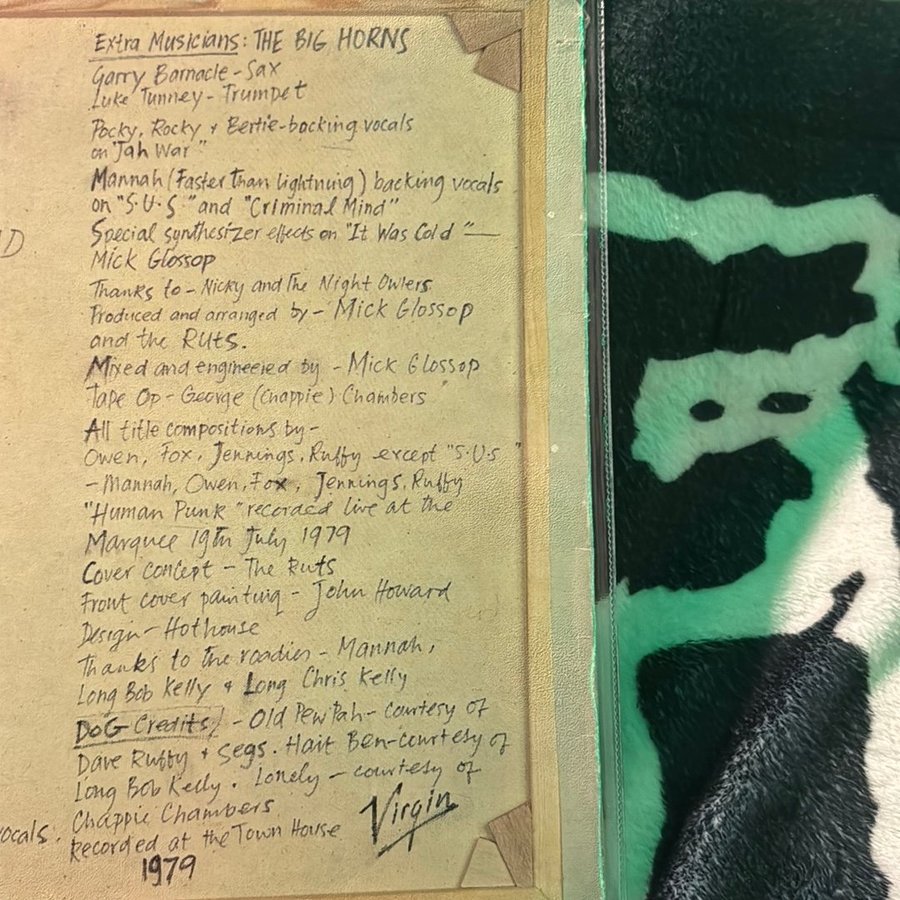 Extra Musicians: THE BIG HORNS
Garry Barnacle - Sax
Luke Tunney - Trumpet
Pocky, Rocky + Bertie-backing vocals
on "Jah War"
Mannah (Faster Than lightning) backing vocals
on "S.U.S." and "Criminal Mind"
Special synthesizer effects on "It Was Cold" —
Mick Glossop
Thanks to - Nicky and The Night Owlers
Produced and arranged by - Mick Glossop
and the Ruts.
Mixed and engineered by - Mick Glossop
Tape Op - George (Chappie) Chambers
All title compositions by -
Owen, Fox, Jennings, Ruffy except "S.U.S"
- Mannah, Owen, Fox, Jennings, Ruffy
"Human Punk" recorded live at the
Marquee 19th July 1979
Cover concept - The Ruts
Front cover painting - John Howard
Design - Hothouse
Thanks to the roadies - Mannah,
Long Bob Kelly + Long Chris Kelly
DoG Credits - Old Pew Pah - courtesy of
Dave Ruffy + Segs. Hait Ben-courtesy of
Long Bob Kelly. Lonely - courtesy of
Chappie Chambers
vocals. Recorded at the Town House
1979
Virgin